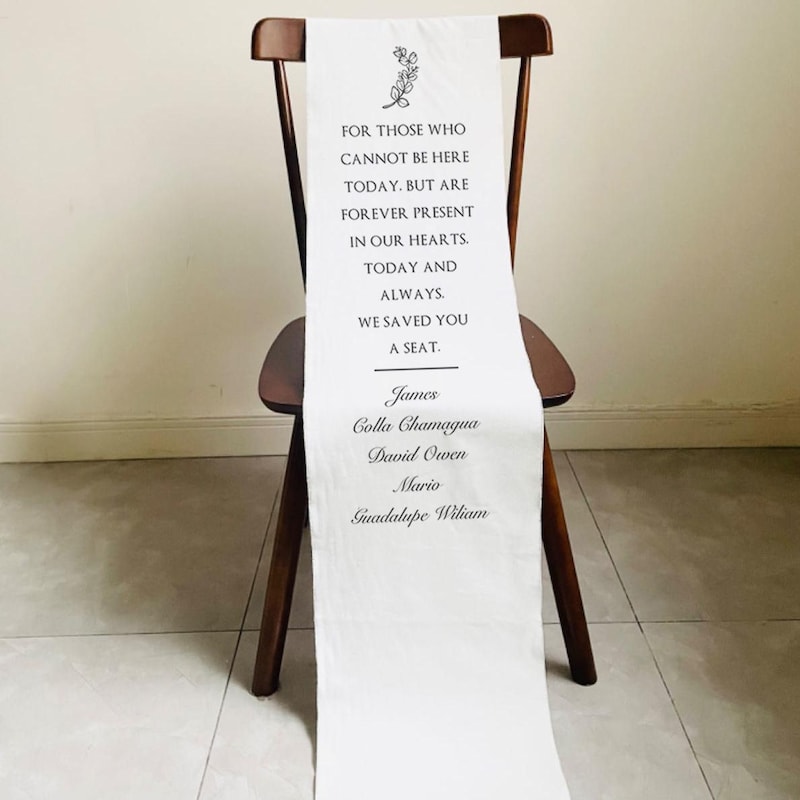 FOR THOSE WHO
CANNOT BE HERE
TODAY. BUT ARE
FOREVER PRESENT
IN OUR HEARTS.
TODAY AND
ALWAYS.
WE SAVED YOU
A SEAT.
James
Colla Chamagua
David Owen
Mario
Guadalupe Wiliam